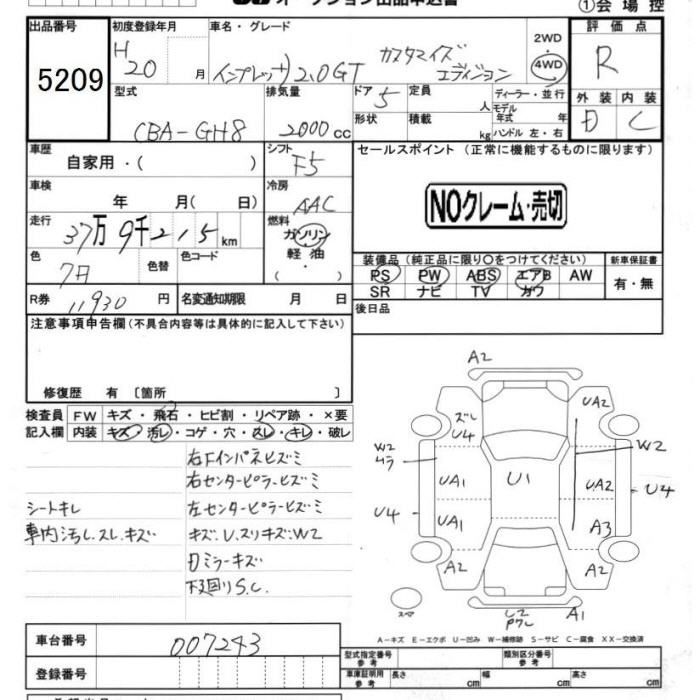 ①会場控
出品番号 初度登録年月 車名・グレード 2WD 評価点
5209 H20月 インプレッサ2.0GT カスタマイズエディション 4WD R
型式 排気量 ドア 定員 ディーラー・並行 外装 内装
CBA-GH8 2000cc 5 人 モデル年式 年 D C
形状 積載 kg ハンドル 左・右
車歴 シフト セールスポイント (正常に機能するものに限ります)
自家用・( ) F5
車検 冷房
年 月( 日) AAC
NOクレーム・売切
走行 燃料
37万9千215km ガソリン
色 色替 色コード 軽油
( )
装備品(純正品に限り○をつけてください) 新車保証書
PS PW ABS エアB AW 有・無
SR ナビ TV カワ
R券 11930円 名変通知期限 月 日 後日品
注意事項申告欄(不具合内容等は具体的に記入して下さい)
修復歴 有 〔箇所 〕
検査員 FW キズ・飛石・ヒビ割・リペア跡・×要
記入欄 内装 キズ・汚レ・コゲ・穴・スレ・キレ・破レ
右Fインパネヒズミ
右センターピラーヒズミ
シートキレ 左センターピラーヒズミ
車内汚レ.スレ.キズ キズ.U.スリキズ.W2
Dミラーキズ
下廻りS.C.
A2
ズレ
U4
UA2
W2
W2
UA1
U1
UA2
U4
U4
UA1
A3
A2
A2
スペア
A1
A－キズ E－エクボ U－凹み W－補修跡 S－サビ C－腐食 XX－交換済
車台番号 007243
型式指定番号 参考 類別区分番号 参考
登録番号 車庫証明用 参考 長さ cm 幅 cm 高さ cm